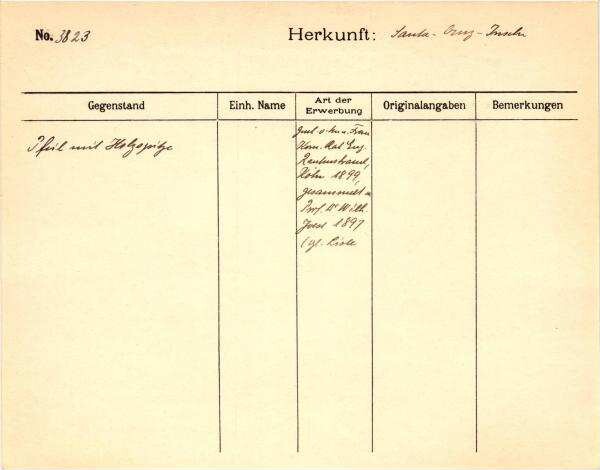 No. 3823
Herkunft: Santa-Cruz-Inseln
Gegenstand
Einh. Name
Art der
Erwerbung
Originalangaben
Bemerkungen
Pfeil mit Holzspitze
Frau
Kom. Rat Eug.
Rautenstrauch,
Köln 1899,
gesammelt v.
Prof. Dr Wilh.
Joest 1897
Liste